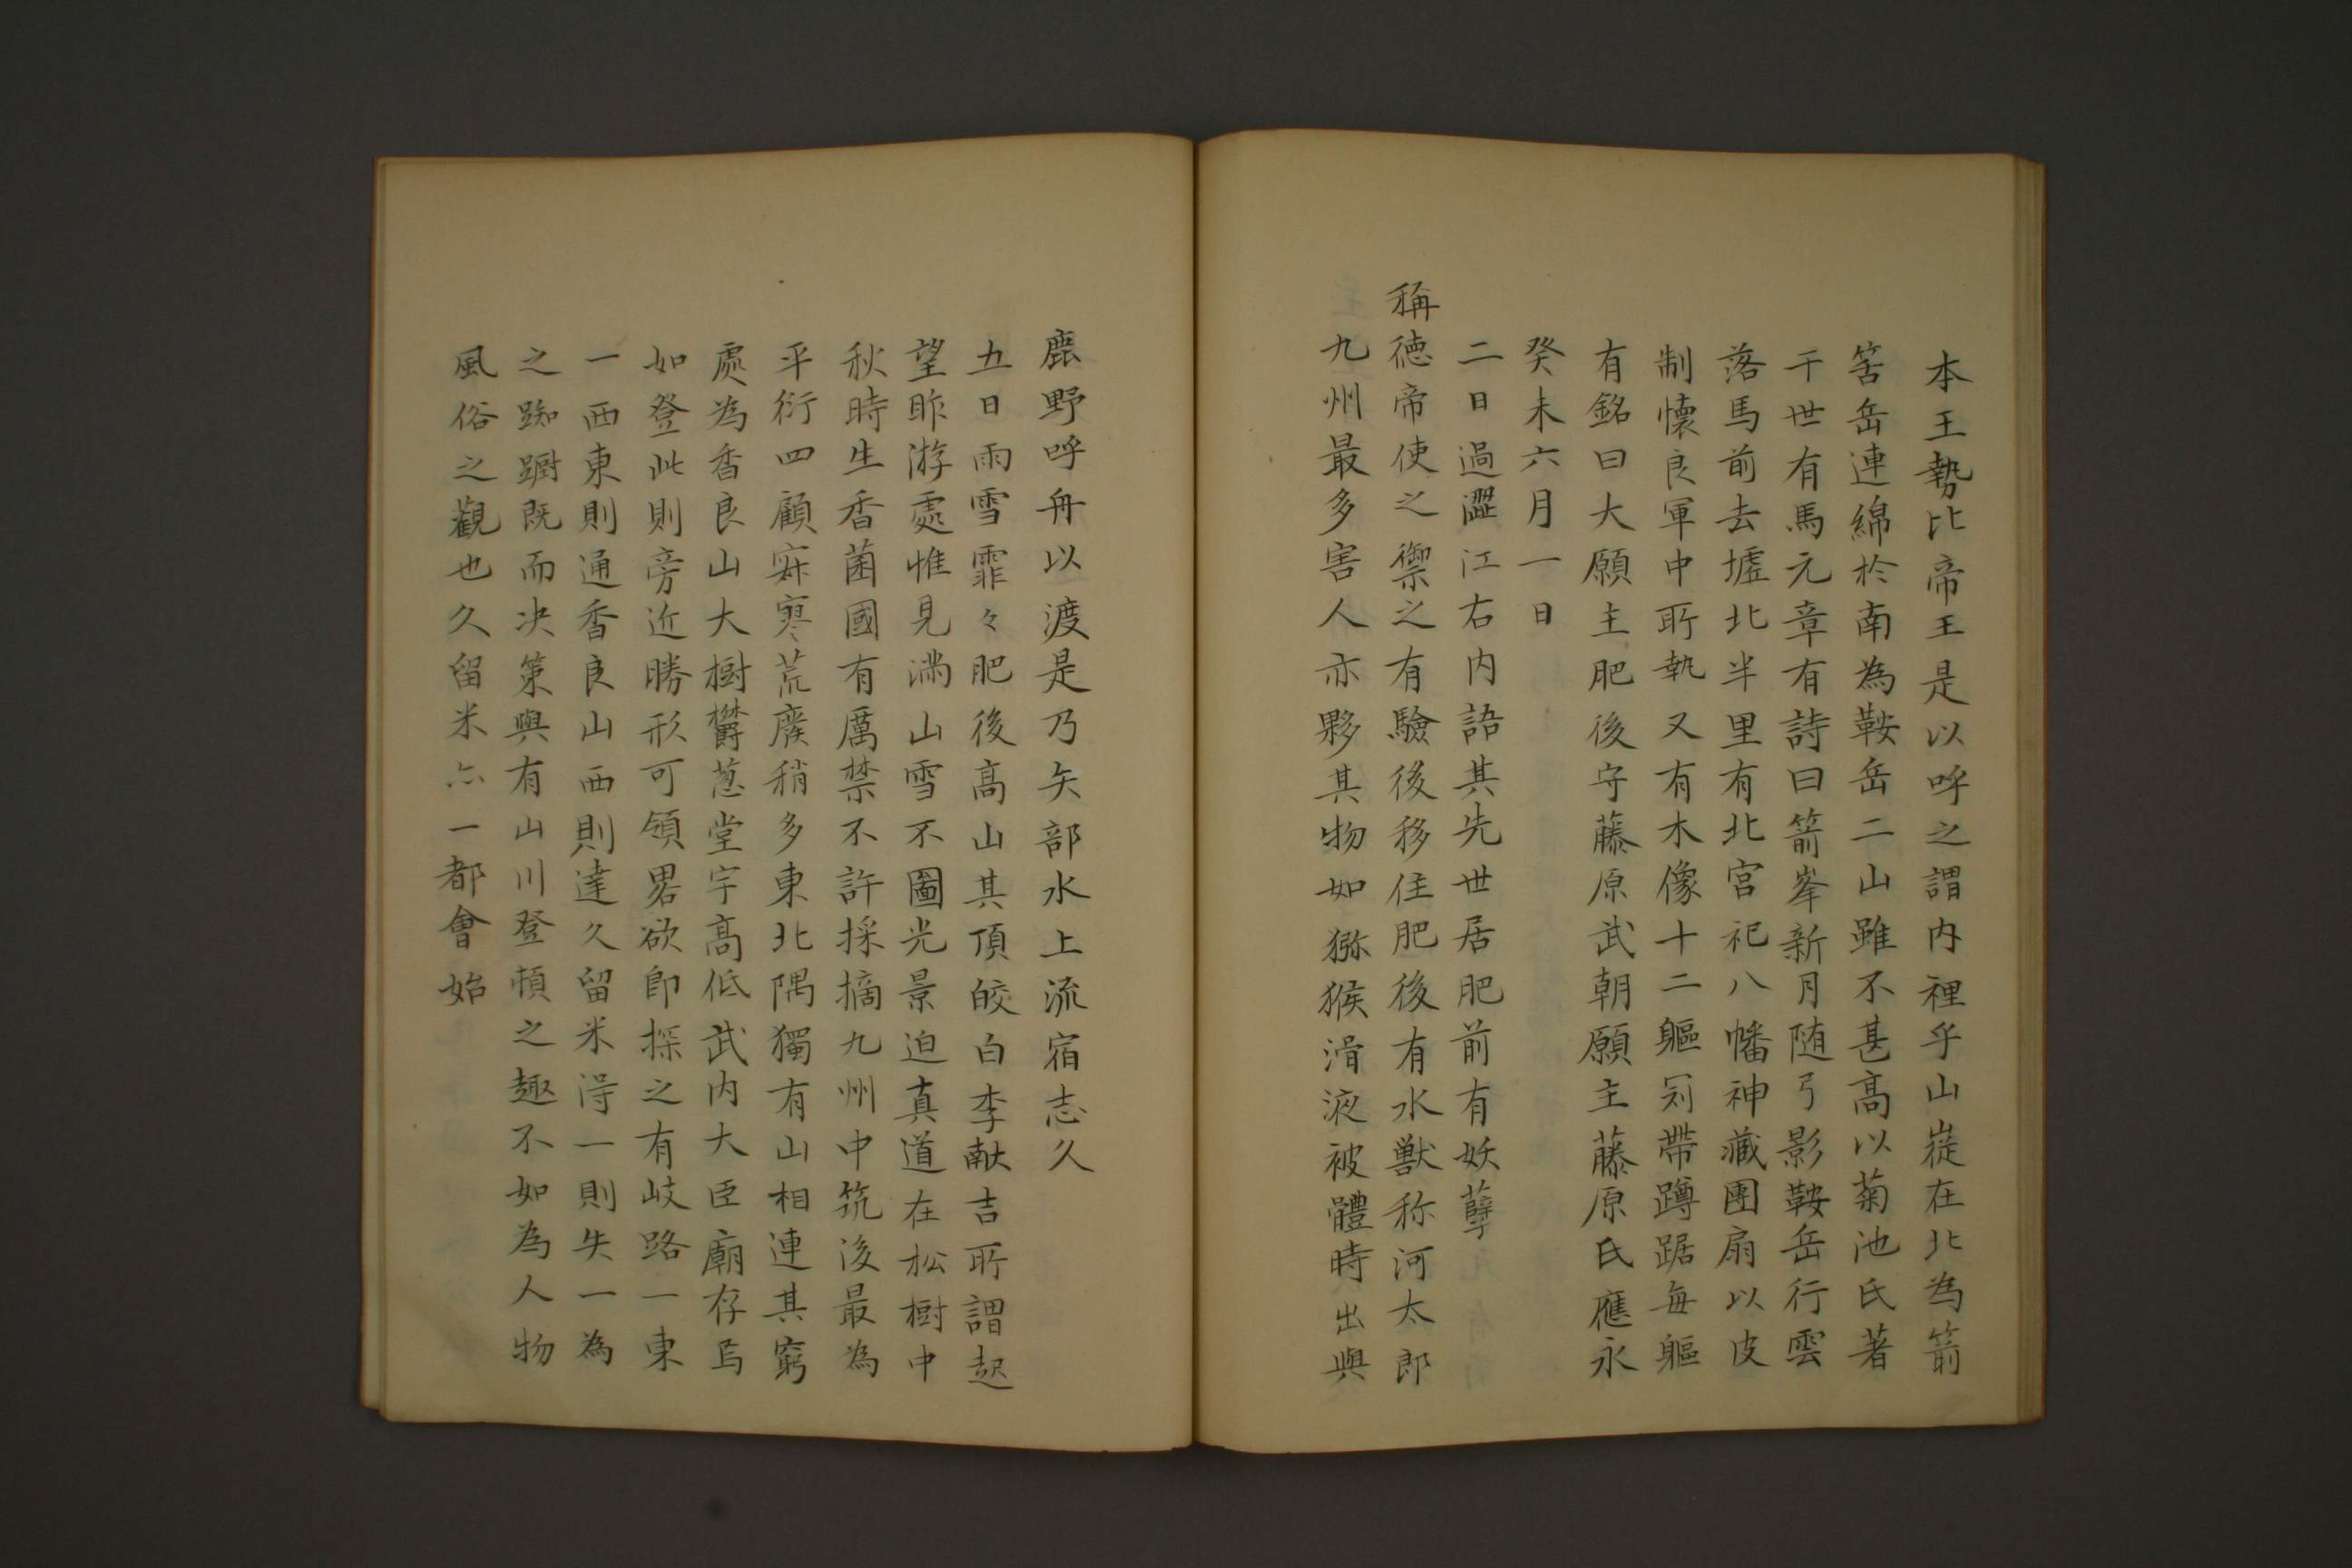 本王勢比帝王是以呼之謂内裡乎山嶷在北為箭
筈岳連綿於南為鞍岳二山雖不甚高以菊池氏著
于世有馬元章有詩曰箭峯新月随弓影鞍岳行雲
落馬前去墟北半里有北宮祀八幡神藏團扇以皮
制懷良軍中所執又有木像十二軀冠帶蹲踞毎軀
有銘曰大願主肥後守藤原武朝願主藤原氏應永
癸未六月一日
二日過澀江右内語其先世居肥前有妖孽
稱德帝使之禦之有驗後移住肥後有水獸称河太郎
九州最多害人亦夥其物如猕猴滑液被體時出與
鹿野呼舟以渡是乃矢部水上流宿志久
五日雨雪霏々肥後高山其頂皎白李献吉所謂起
望昨游處惟見滿山雪不圖光景迫真道在松樹中
秋時生香菌國有厲禁不許採摘九州中筑後最為
平衍四顧寂寥荒廢稍多東北隅獨有山相連其窮
處為香良山大樹欝葱堂宇高低武内大臣廟存焉
如登此則旁近勝形可領畧欲即探之有岐路一東
一西東則通香良山西則達久留米得一則失一為
之踟蹰既而决策與有山川登頓之趣不如為人物
風俗之觀也久留米亦一都會始